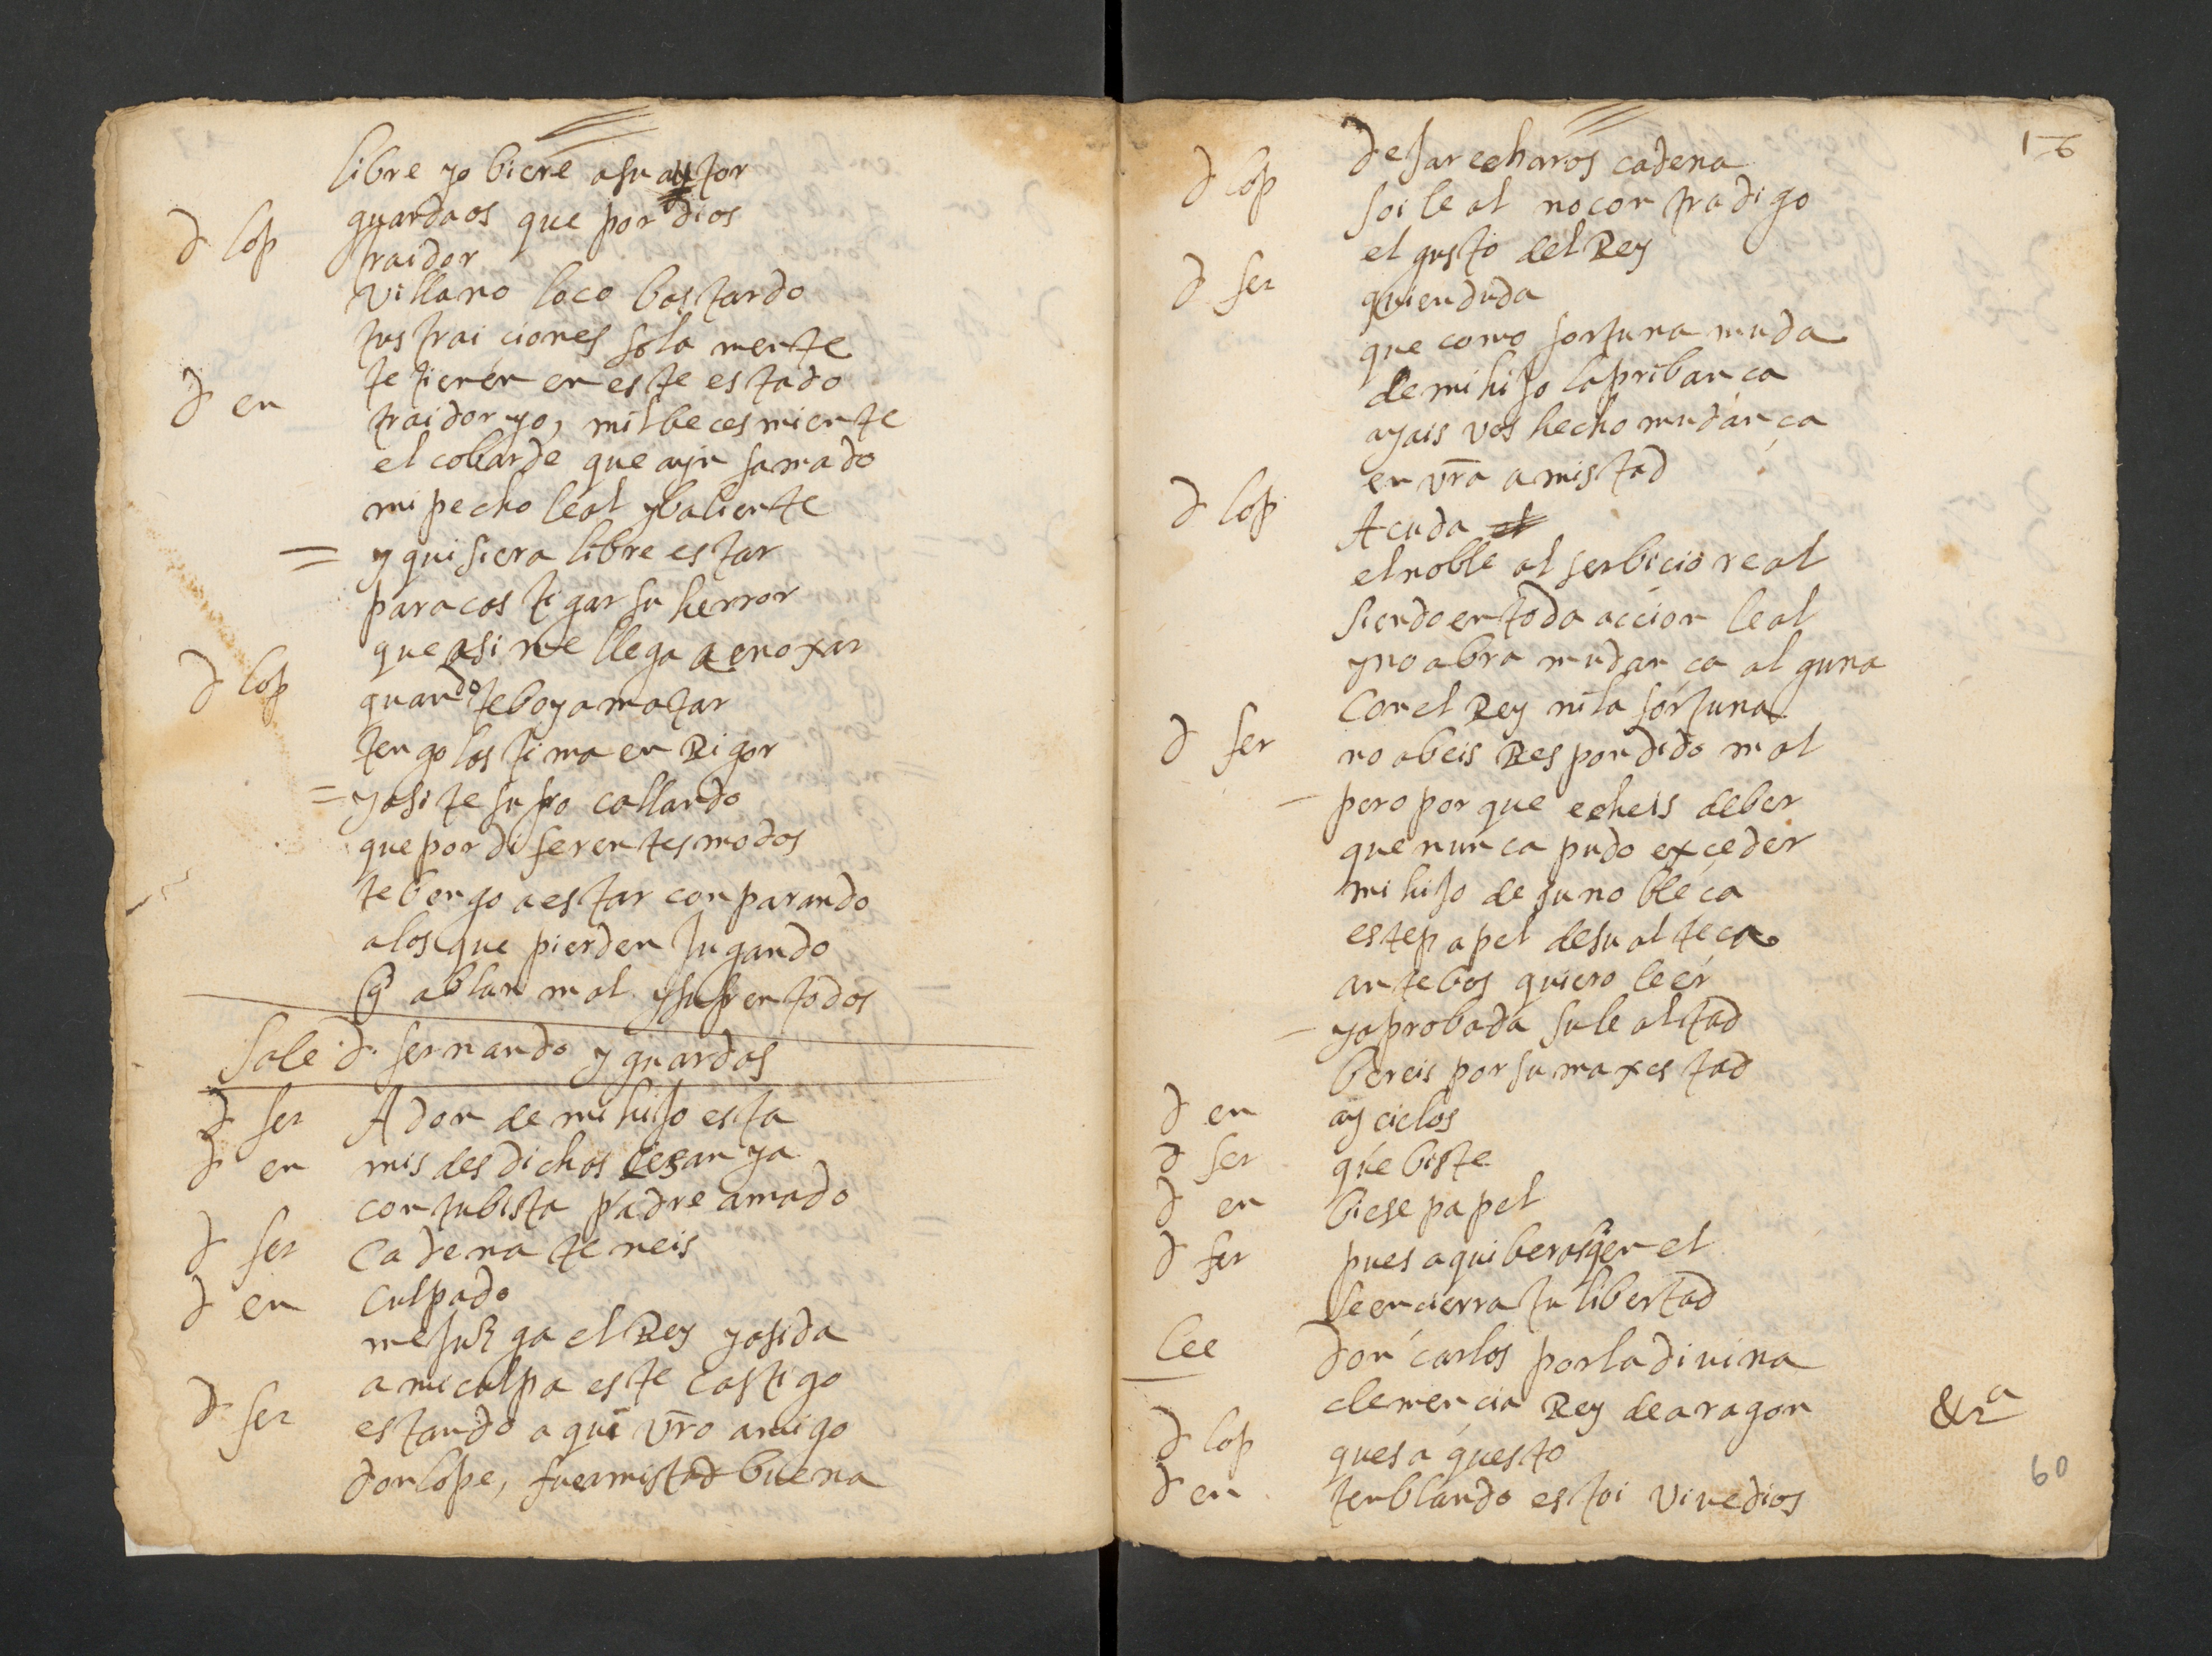 libre yo biere a su autor
guardaos que por dios
d lop traidor
villano loco bastardo
tus traiciones sola mente
te tienen en este estado
d en traidor yo, mil beces miente
el cobarde que ayn famado
mi pecho leal y baliente
= y quisiera libre estar
para castigar su herror
que asi me llega a enoxar
d lop quando te boy a matar
tengo lastima en Rigor
= y asi te sufro callando
que por diferentes modos
te bengo a estar conparando
a los que pierden Jugando
q ablan mal y sufren todos
Sale d. fernando y guardas
d fer A don de mi hijo esta
d en mis desdichas cesan ya
con tu bista padre amado
d fer Cadena teneis
d en Culpado
me Juzga el Rey y asi da
a mi culpa este castigo
d fer estando aqui vro amigo
don lope, fue amistad buena
1-6
dejar echaros cadena
d lop soi leal no contradigo
el gusto del Rey
d fer quien duda
que como fortuna muda
de mi hijo la pribança
ayais vos hecho mudança
en vra amistad
d lop Acuda
el noble al serbicio real
siendo en toda accion leal
y no abra mudança alguna
con el Rey ni la fortuna
d fer no abeis Respondido mal
- pero porque echeis de ber
que nunca pudo exçeder
mi hijo de su nobleça
este papel de su alteça
ante bos quiero leer
- y aprobada su lealtad
bereis por su maxestad
d en ay cielos
d fer que biste
d en bi ese papel
d fer pues aqui beras q en el
se encierra tu libertad
lee don carlos por la divina
clemencia Rey de aragon &ra
d lop ques aquesto
d en tenblando estoi vive dios
60